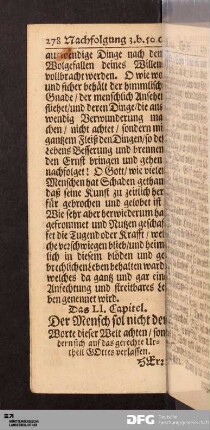 278 Nachfolgung 3. b. 50. c
auswendige Dinge nach dem
Wolgefallen deines Willen
vollbracht werden. O wie wo
und sicher behält der himmlisch
Gnade / der menschlich Ansehe
fliehet / und deren Dinge / die aus
wendig Verwunderung ma
chen / nicht achtet / sondern mi
gantzem Fleiß den Dingen / so de
Lebens Besserung und brennen
den Ernst bringen und gehe
nachfolget! O Gott / wie vielen
Menschen hat Schaden gethan
daß seine Kunst zu zeitlich her
für gebrochen und gelobet ist
Wie sehr aber herwiederum ha
gefrommet und Nutzen geschaf
fet die Tugend oder Krafft / wel
che verschwiegen blieb / und heim
lich in diesem blöden und ge
brechlichen Leben behalten ward
welches da gantz und gar ein
Anfechtung und streitbares Le
ben genennet wird.
Das LI. Capitel.
Der Mensch sol nicht der
Worte dieser Welt achten / son
dern sich auf das gerechte Ur-
theil GOttes verlassen.
HErr
DFG
Deutsche
Forschungsgemeinschaft